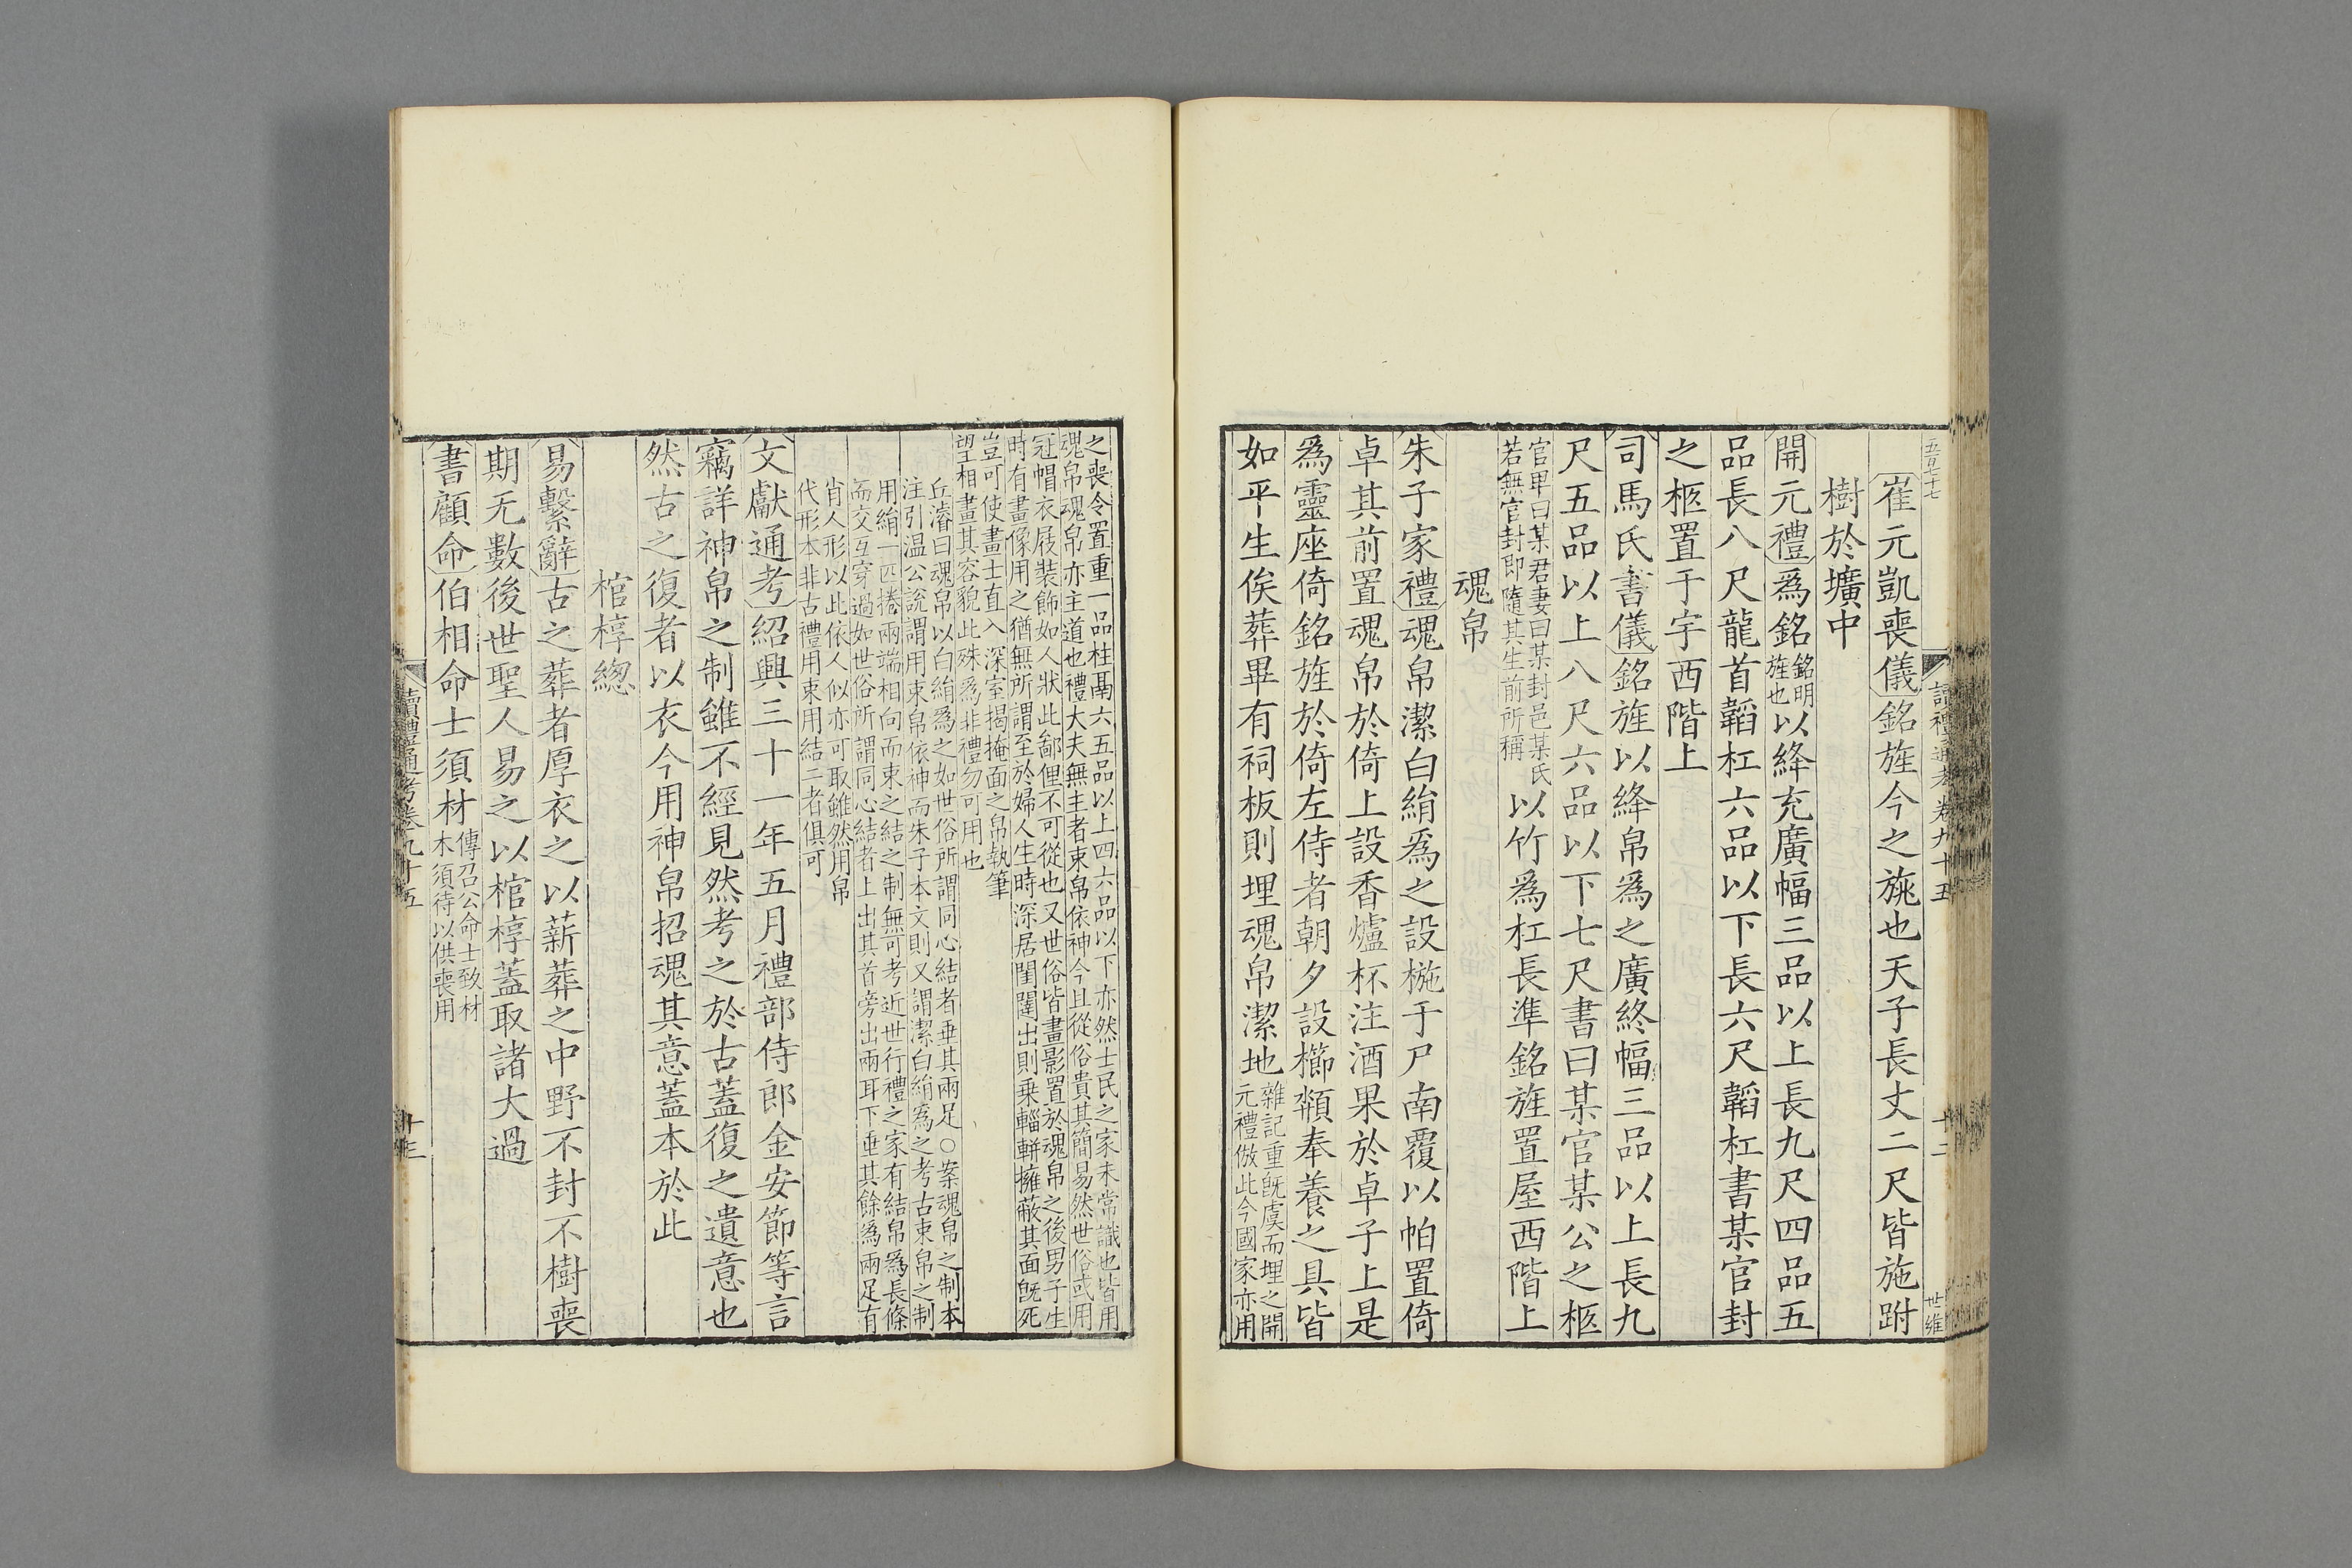 五百七十七
讀禮通考卷九十五
十二
世維
崔元凱喪儀銘旌今之旐也天子長丈二尺皆施跗
樹於壙中
開元禮爲銘銘明旌也以絳充廣幅三品以上長九尺四品五
品長八尺龍首韜杠六品以下長六尺韜杠書某官封
之柩置于宇西階上
司馬氏書儀銘旌以絳帛爲之廣終幅三品以上長九
尺五品以上八尺六品以下七尺書曰某官某公之柩
官卑曰某君妻曰某封邑某氏
若無官封即隨其生前所稱
以竹爲杠長準銘旌置屋西階上
魂帛
朱子家禮魂帛潔白絹爲之設椸于尸南覆以帕置倚
卓其前置魂帛於倚上設香爐杯注酒果於卓子上是
爲靈座倚銘旌於倚左侍者朝夕設櫛頮奉養之具皆
如平生俟葬畢有祠板則埋魂帛潔地
雜記重旣虞而埋之開
元禮倣此今國家亦用
之喪令置重一品柱鬲六五品以上四六品以下亦然士民之家未常識也皆用
魂帛魂帛亦主道也禮大夫無主者束帛依神今且從俗貴其簡易然世俗或用
冠帽衣屐裝飾如人狀此鄙俚不可從也又世俗皆畫影置於魂帛之後男子生
時有畫像用之猶無所謂至於婦人生時深居閨闥出則乗輜軿擁蔽其面旣死
豈可使畫士直入深室揭掩面之帛執筆
望相畫其容貌此殊爲非禮勿可用也
丘濬曰魂帛以白絹爲之如世俗所謂同心結者垂其兩足○案魂帛之制本
注引温公說謂用束帛依神而朱子本文則又謂潔白絹爲之考古束帛之制
用絹一匹捲兩端相向而束之結之制無可考近世行禮之家有結帛爲長條
而交互穿過如世俗所謂同心結者上出其首旁出兩耳下垂其餘爲兩足有
肖人形以此依人似亦可取雖然用帛
代形本非古禮用束用結二者俱可
文獻通考紹興三十一年五月禮部侍郎金安節等言
竊詳神帛之制雖不經見然考之於古蓋復之遺意也
然古之復者以衣今用神帛招魂其意蓋本於此
棺椁總
易繫辭古之葬者厚衣之以薪葬之中野不封不樹喪
期无數後世聖人易之以棺椁蓋取諸大過
書顧命伯相命士須材
傳召公命士致材
木須待以供喪用
讀禮通考卷九十五
十三